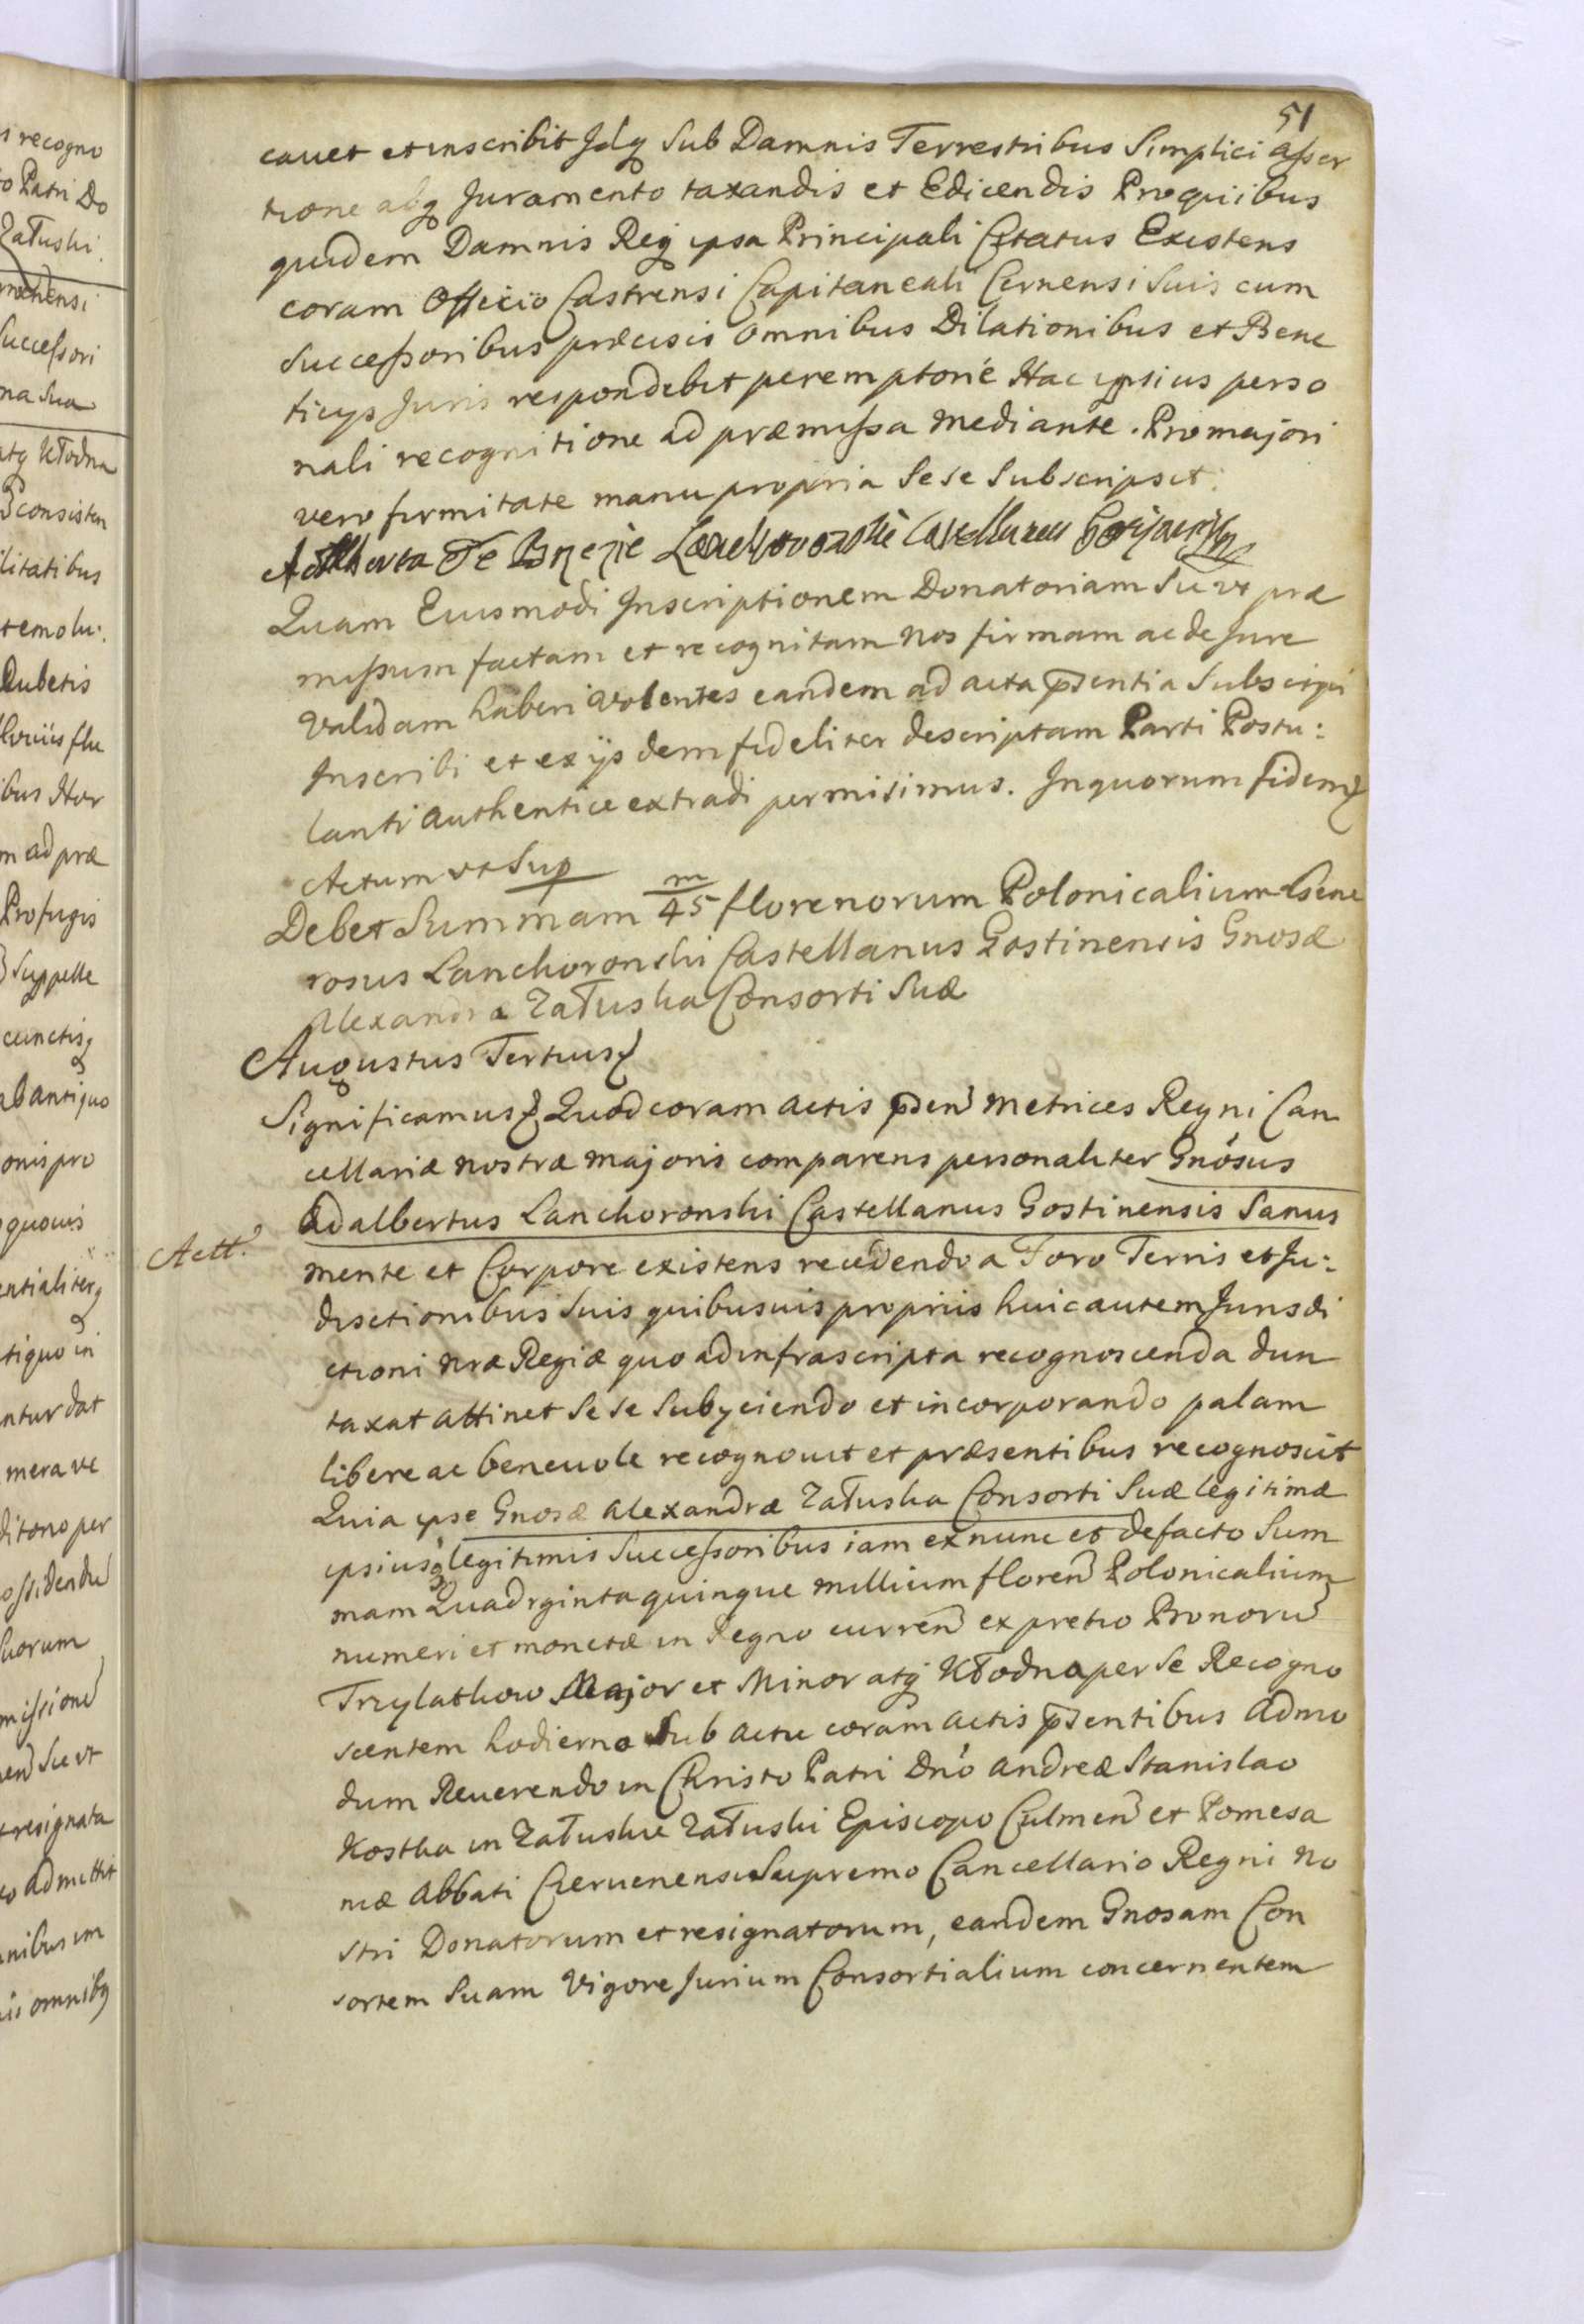 51
cauet et inscribit Idq Sub Damnis Terrestribus Simplici asser
tione absq Juramento taxandis et Edicendis Pro quiibus
quidem Damnis Req ipsa Principali Citatus Existens
coram Officio Castrensi Capitaneali Cernensi Suis cum
Successoribus præcisis omnibus Dilationibus et Bene
ficys Juris respondebit peremptorie Hac ipsius perso
nali recognitione ad præmissa mediante. Pro majori
vero firmitate manu propria Sese Subscripsit:
de Brzezie
Quam Eiusmodi Inscriptionem Donatoriam Sic vt præ
missum factam et recognitam nos firmam ac de Jure
validam haberi volentes eandem ad acta pstentia Subscripi
Inscribi et ex ijsdem fideliter descriptam Parti Postu:
lanti authentice extradi permisimus. In quorum fidem
Actum vt Sup
Debet Summam m/45 florenorum Polonicalium Gene
rosus Lanckoronski Castellanus Gostinensis Gnosæ
Alexandræ Załuska Consorti Suæ
Augustus Tertius
Significamus Quod coram actis psen Metrices Regni Can
cellariæ nostræ majoris comparens personaliter Gnosus
Adalbertus Lanckoronski Castellanus Gostinensis Sanus
Actt.
mente et Corpore existens recedendo a Foro Terris et Ju:
disctionibus Suis quibusuis propriis huic autem Jurisdi
ctioni nræ Regiæ quo ad infrascripta recognoscenda dun
taxat attinet Sese Subyciendo et incorporando palam
libere ac beneuole recognouit et præsentibus recognoscit
Quia ipse Gnosæ Alexandræ Załuska Consorti Suæ legitimæ
ipsiusq legitimis Successoribus iam ex nunc et de facto Sum
mam Quadrginta quinque millium floren Polonicalium
numeri et monetæ in Regno curren ex pretio Bonoru
Trzylatkow Major et Minor atq Kłodno per Se Recogno
scentem hodierno Sub actu coram actis psentibus admo
dum Reuerendo in Christo Patri Dno Andreæ Stanislao
Kostka in Załuskie Załuski Episcopo Culmen et Pomesa
niæ Abbati Czeruenensi Supremo Cancellario Regni No
stri Donatorum et resignatorum, eandem Gnosam Con
sortem Suam vigore Jurium Consortialium concernentem